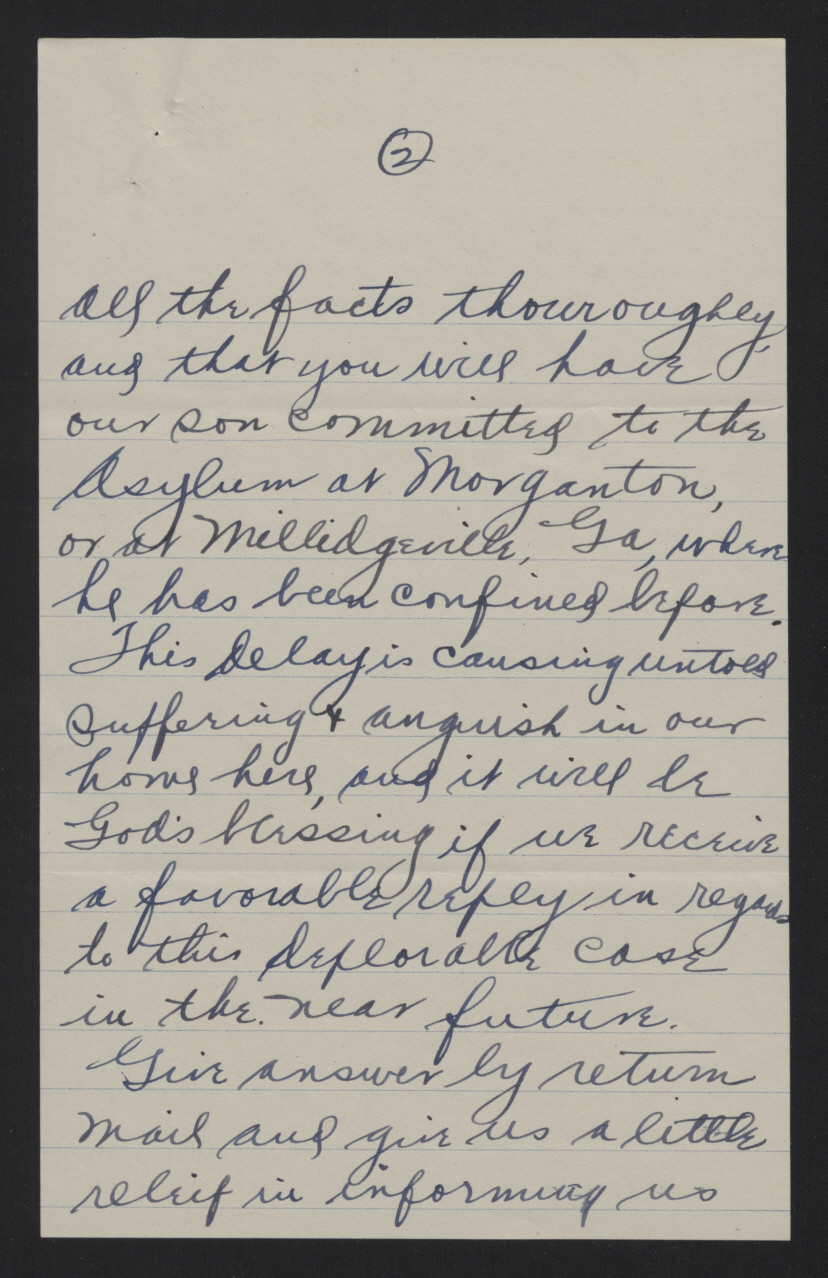 2
all the facts thouroughly,
and that you will have
our son committed to the
Asylum at Morganton,
or at Millidgeville, Ga, where
he has been confined before.
This delay is causing untold
suffering & anguish in our
home here, and it will be
God's blessing if we receive
a favorable reply in regards
to this deplorable case
in the near future.
Give answer by return
mail and give us a little
releif in informing us